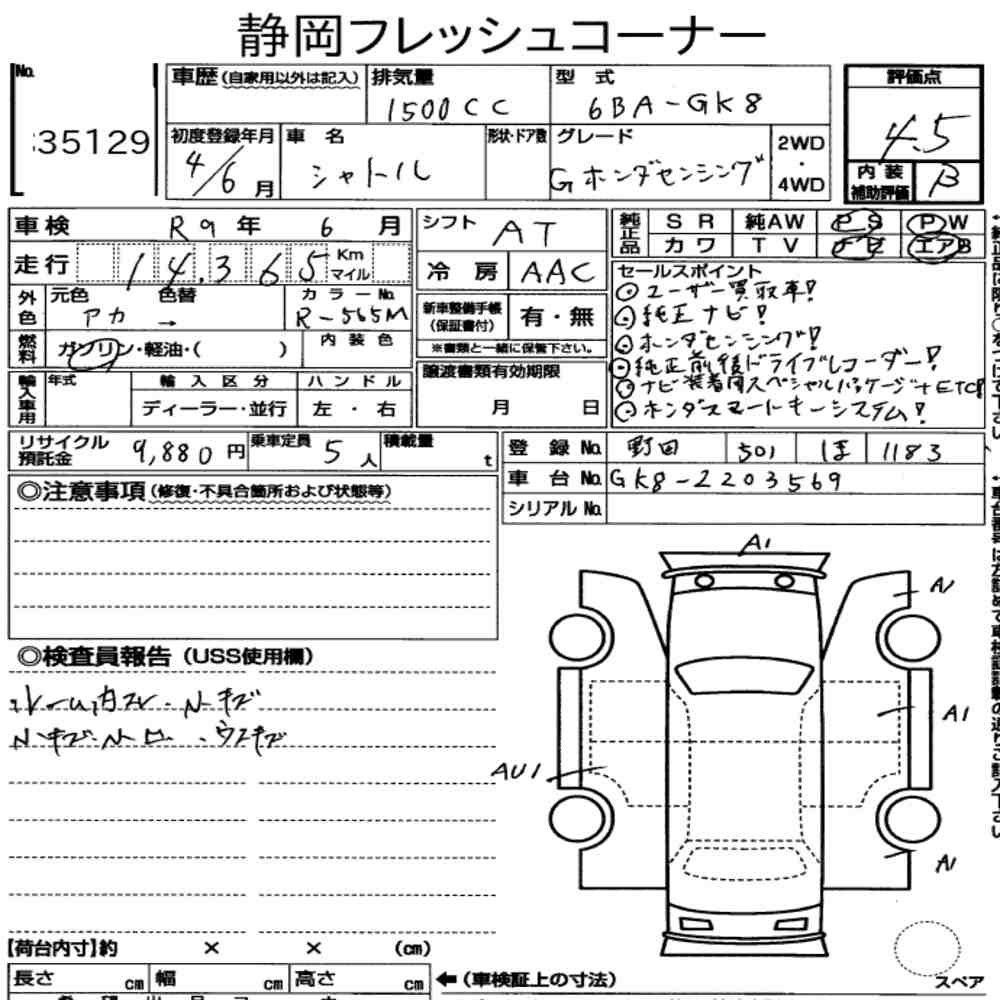 静岡フレッシュコーナー
No. 35129
車歴(自家用以外は記入) 排気量 1500CC 型式 6BA-GK8
評価点 4.5
初度登録年月 4/6月 車名 シャトル 形状・ドア数 グレード Gホンダセンシング 2WD・4WD
内装補助評価 B
車検 R9年 6月
シフト AT
純正品 SR 純AW PS PW
カワ TV ナビ エアB
走行 14,365 Km マイル
冷房 AAC
セールスポイント
ユーザー買取車!
純正ナビ!
ホンダセンシング!
純正前後ドライブレコーダー!
ナビ装着用スペシャルパッケージ+ETC!
ホンダスマートキーシステム!
外色 元色 アカ 色替 → カラーNo. R-565M
新車整備手帳(保証書付) 有・無
※書類と一緒に保管下さい。
燃料 ガソリン・軽油・( ) 内装色
譲渡書類有効期限 月 日
輸入車用 年式 輸入区分 ハンドル
ディーラー・並行 左・右
リサイクル預託金 9,880円 乗車定員 5人 積載量 t
登録No. 野田 501 ほ 1183
車台No. GK8-2203569
シリアルNo.
◎注意事項(修復・不具合箇所および状態等)
◎検査員報告(USS使用欄)
A1
A1
A1
AU1
A1
【荷台内寸】約 × × (cm)
長さ cm 幅 cm 高さ cm
←(車検証上の寸法)
スペア